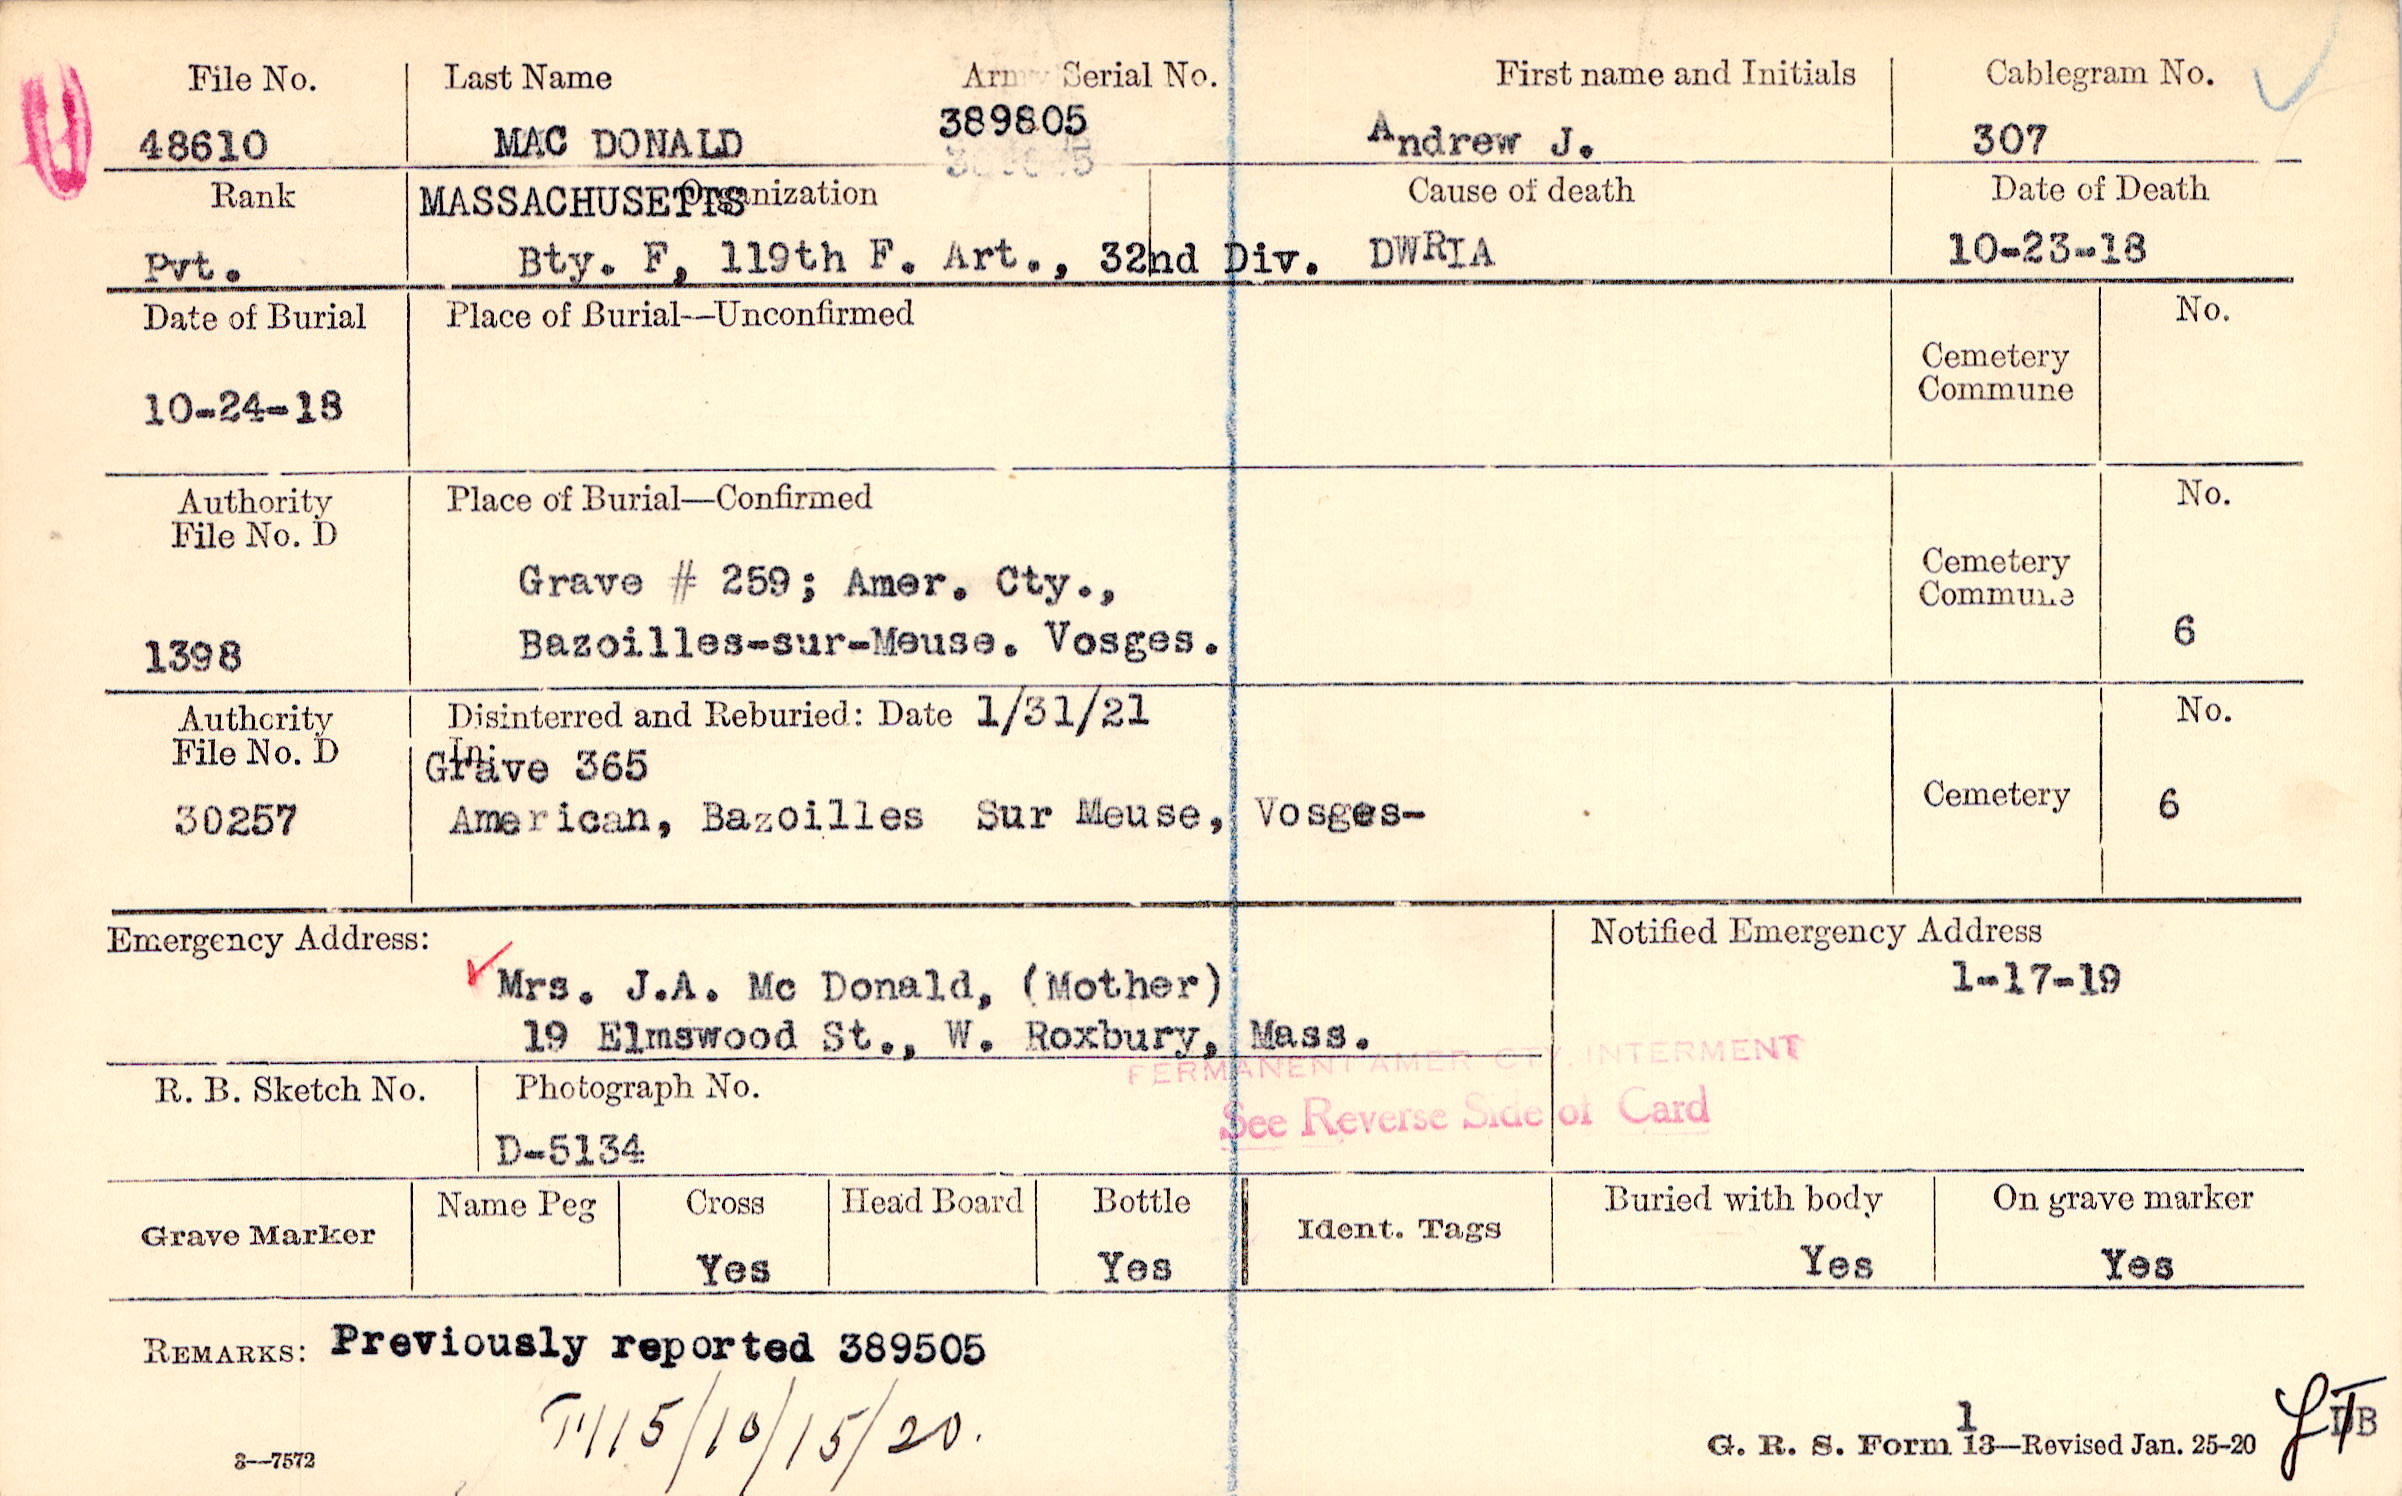 File No. Last Name Army Serial No. First name and Initials Cablegram No.
48610 MAC DONALD 389805 Andrew J. 307
Rank MASSACHUSETTS Organization Cause of death Date of Death
Pvt. Bty. F, 119th F. Art., 32nd Div. DWRIA 10-23-18
Date of Burial Place of Burial—Unconfirmed No.
Cemetery
Commune
10-24-18
Authority Place of Burial—Confirmed No.
File No. D
Cemetery
Commune
Grave # 259; Amer. Cty.,
1398 Bazoilles-sur-Meuse. Vosges. 6
Authority Disinterred and Reburied: Date 1/31/21 No.
File No. D In:
Grave 365
30257 American, Bazoilles Sur Meuse, Vosges- Cemetery 6
Emergency Address: Notified Emergency Address
Mrs. J.A. Mc Donald, (Mother) 1-17-19
19 Elmswood St., W. Roxbury, Mass.
PERMANENT AMER CTY. INTERMENT
See Reverse Side of Card
R. B. Sketch No. Photograph No.
D-5134
Grave Marker Name Peg Cross Head Board Bottle Ident. Tags Buried with body On grave marker
Yes Yes Yes Yes
REMARKS: Previously reported 389505
/10/15/20.
3—7572 G. R. S. Form 1 13—Revised Jan. 25-20